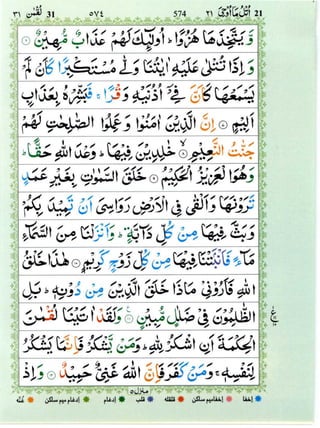 لقمٰن 31 ٣١ ٥٧٤ 574 ٢١ اُتْلُ مَآ اُوْحِیَ 21
وَّ یَتَّخِذَهَا هُزُوًا ؕ اُولٰٓىِٕكَ لَهُمْ عَذَابٌ مُّهِیْنٌ ۝
وَ اِذَا تُتْلٰى عَلَیْهِ اٰیٰتُنَا وَلّٰى مُسْتَكْبِرًا كَاَنْ لَّمْ
یَسْمَعْهَا كَاَنَّ فِیْۤ اُذُنَیْهِ وَقْرًا ۚ فَبَشِّرْهُ بِعَذَابٍ
اَلِیْمٍ ۝ اِنَّ الَّذِیْنَ اٰمَنُوْا وَ عَمِلُوا الصّٰلِحٰتِ لَهُمْ
جَنّٰتُ النَّعِیْمِ ۝ خٰلِدِیْنَ فِیْهَا ؕ وَعْدَ اللّٰهِ حَقًّا ؕ
وَ هُوَ الْعَزِیْزُ الْحَكِیْمُ ۝ خَلَقَ السَّمٰوٰتِ بِغَیْرِ عَمَدٍ
تَرَوْنَهَا وَ اَلْقٰى فِی الْاَرْضِ رَوَاسِیَ اَنْ تَمِیْدَ بِكُمْ
وَ بَثَّ فِیْهَا مِنْ كُلِّ دَآبَّةٍ ؕ وَ اَنْزَلْنَا مِنَ السَّمَآءِ
مَآءً فَاَنْۢبَتْنَا فِیْهَا مِنْ كُلِّ زَوْجٍ كَرِیْمٍ ۝ هٰذَا خَلْقُ
اللّٰهِ فَاَرُوْنِیْ مَا ذَا خَلَقَ الَّذِیْنَ مِنْ دُوْنِهٖ ؕ بَلِ
الظّٰلِمُوْنَ فِیْ ضَلٰلٍ مُّبِیْنٍ ۝ وَ لَقَدْ اٰتَیْنَا لُقْمٰنَ
الْحِكْمَةَ اَنِ اشْكُرْ لِلّٰهِ ؕ وَ مَنْ یَّشْكُرْ فَاِنَّمَا یَشْكُرُ
لِنَفْسِهٖ ۚ وَ مَنْ كَفَرَ فَاِنَّ اللّٰهَ غَنِیٌّ حَمِیْدٌ ۝ وَ اِذْ
منزل ٥
اخفا اخفا میم ساکن قلقله قلب ادغام ادغام میم ساکن غنّه